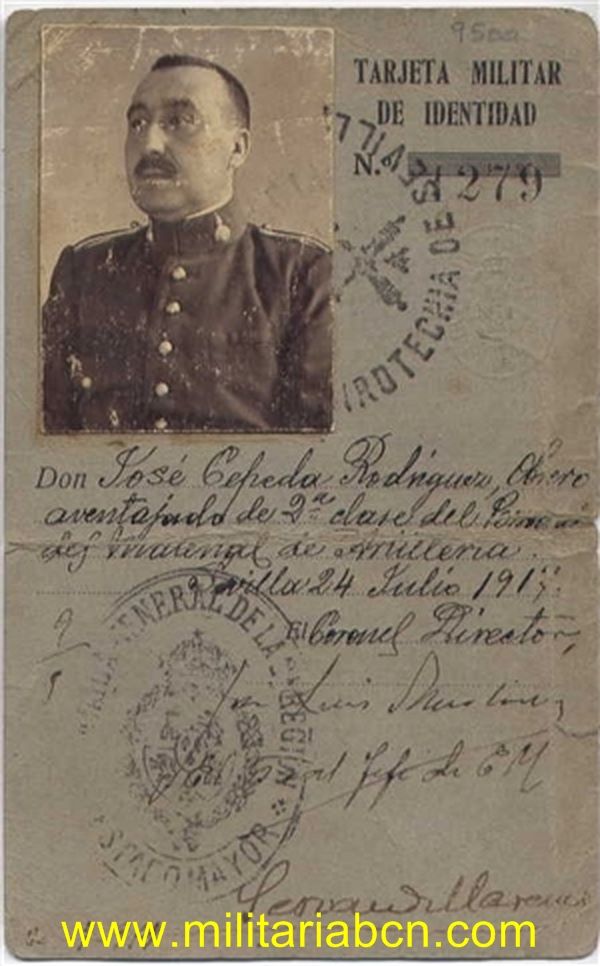 9500
TARJETA MILITAR
DE IDENTIDAD
N.º 1279
PIROTECHIA DE SEVILLA
Don José Cepeda Rodríguez, Obrero
aventajado de 2ª clase del
del Material de Artillería.
Sevilla 24 Julio 191
El Coronel Director,
Luis
El Jefe de E M
GENERAL DE LA 2ª REGION
ESTADO MAYOR
www.militariabcn.com